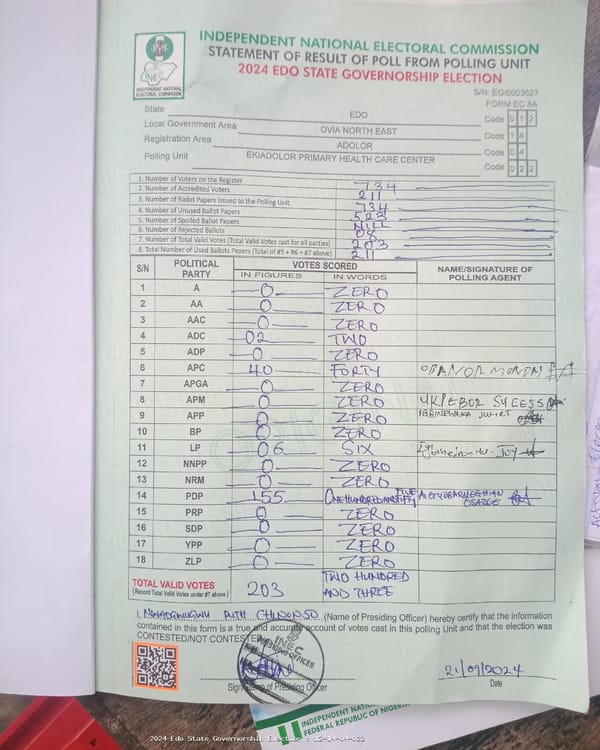 INDEPENDENT NATIONAL ELECTORAL COMMISSION
STATEMENT OF RESULT OF POLL FROM POLLING UNIT
2024 EDO STATE GOVERNORSHIP ELECTION
INEC
INDEPENDENT NATIONAL
ELECTORAL COMMISSION
S/N: EG/0003627
FORM EC 8A
State EDO Code 0 1 2
Local Government Area OVIA NORTH EAST Code 1 4
Registration Area ADOLOR Code 0 4
Polling Unit EKIADOLOR PRIMARY HEALTH CARE CENTER Code 0 2 2
1. Number of Voters on the Register 734
2. Number of Accredited Voters 211
3. Number of Ballot Papers Issued to the Polling Unit 734
4. Number of Unused Ballot Papers 523
5. Number of Spoiled Ballot Papers NILL
6. Number of Rejected Ballots 08
7. Number of Total Valid Votes (Total Valid Votes cast for all parties) 203
8. Total Number of Used Ballots Papers (Total of #5 + #6 + #7 above) 211
S/N POLITICAL PARTY VOTES SCORED NAME/SIGNATURE OF POLLING AGENT
IN FIGURES IN WORDS
1 A 0 ZERO
2 AA 0 ZERO
3 AAC 0 ZERO
4 ADC 02 TWO
5 ADP 0 ZERO
6 APC 40 FORTY
7 APGA 0 ZERO
8 APM 0 ZERO UKPEBOR SYCESS
9 APP 0 ZERO JULIET
10 BP 0 ZERO
11 LP 06 SIX JOY
12 NNPP 0 ZERO
13 NRM 0 ZERO
14 PDP 155 ONE HUNDRED AND FIFTY FIVE OSAZEE
15 PRP 0 ZERO
16 SDP 0 ZERO
17 YPP 0 ZERO
18 ZLP 0 ZERO
TOTAL VALID VOTES 203 TWO HUNDRED
(Record Total Valid Votes under #7 above) AND THREE
I, RUTH CHINONSO (Name of Presiding Officer) hereby certify that the information
contained in this form is a true and accurate account of votes cast in this polling Unit and that the election was
CONTESTED/NOT CONTESTED
INEC
PRESIDING OFFICER
21/09/2024
Sign/Stamp of Presiding Officer Date
INDEPENDENT NATIONAL
FEDERAL REPUBLIC OF NIGERIA
2024 Edo State Governorship Election : 12-14-04-022